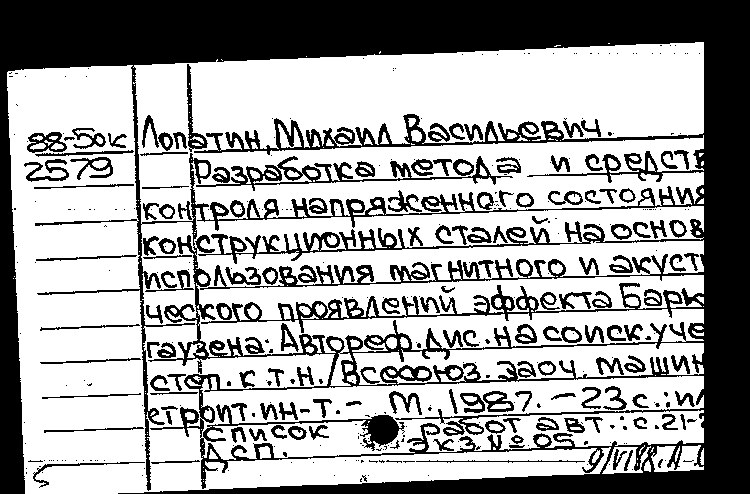 88-50к Лопатин, Михаил Васильевич.
2579 Разработка метода и средств
контроля напряженного состояния
конструкционных сталей на основ
использования магнитного и акусти
ческого проявлений эффекта Барк
гаузена: Автореф. дис. на соиск. уче
степ. к.т.н. / Всесоюз. заоч. машин
строит. ин-т. - М., 1987. - 23 с.: ил
Список работ авт.: с. 21-
Дсп. Экз. № 05.
9/VI88.